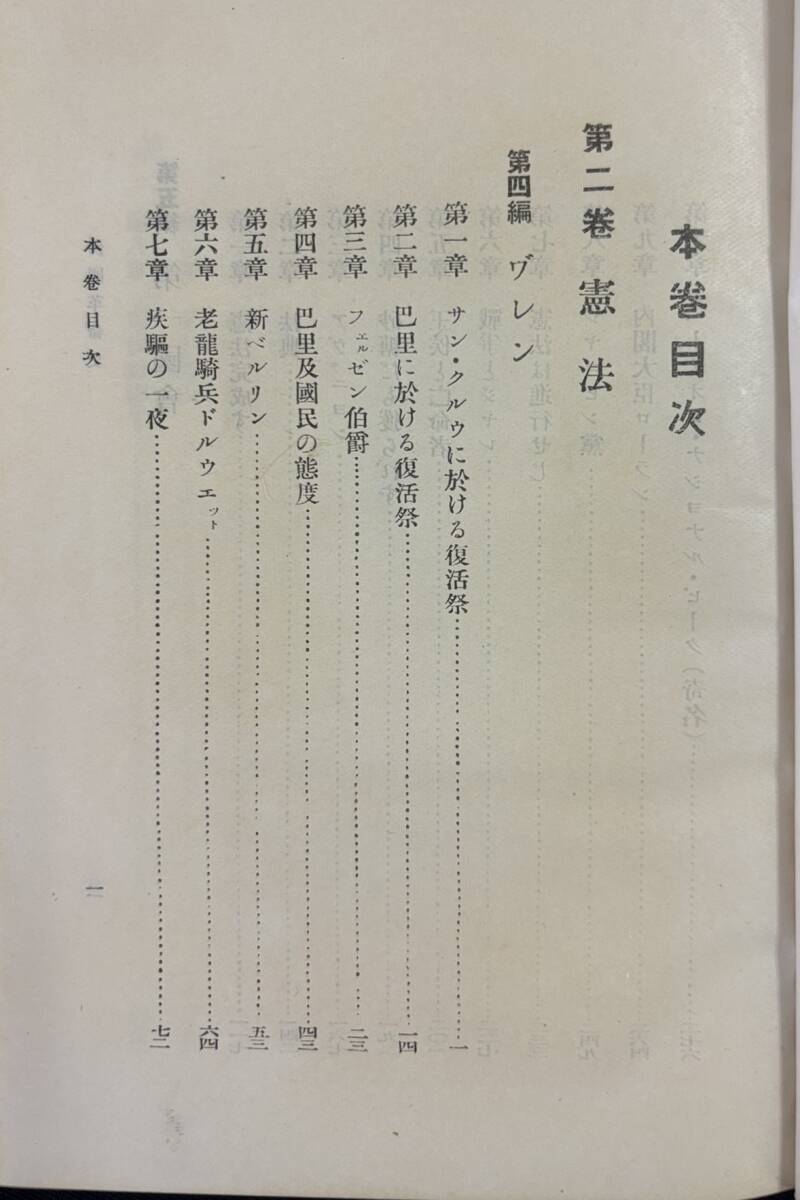 本卷目次
第二卷 憲法
第四編 ヴレンヌ
第一章 サン・クルウに於ける復活祭 一
第二章 巴里に於ける復活祭 一四
第三章 フェルゼン伯爵 二三
第四章 巴里及國民の態度 四三
第五章 新ベルリン 五三
第六章 老龍騎兵ドルウエット 六四
第七章 疾驅の一夜 七二
本卷目次
一